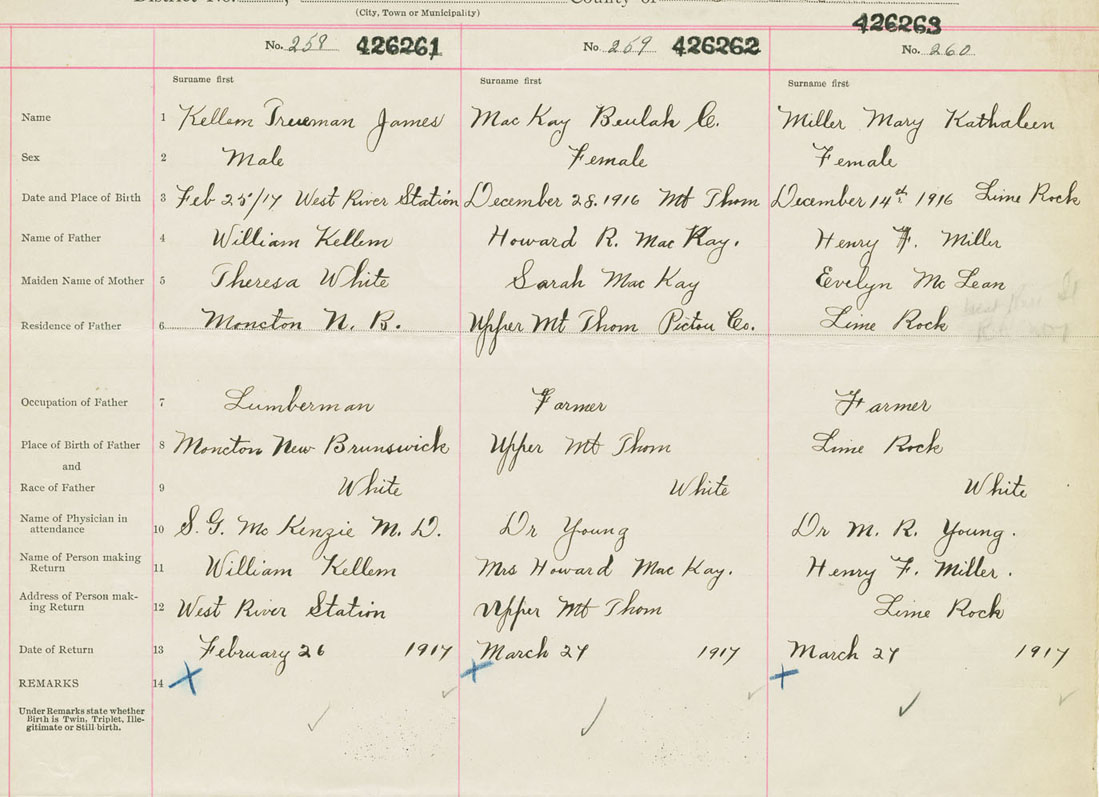 (City, Town or Municipality)
No. 258 426261 No. 259 426262 426263 No. 260
Surname first Surname first Surname first
Name 1 Kellem Trueman James Mac Kay Beulah C. Miller Mary Kathaleen
Sex 2 Male Female Female
Date and Place of Birth 3 Feb 25/17 West River Station December 28, 1916 Mt Thom December 14th 1916 Lime Rock
Name of Father 4 William Kellem Howard R. Mac Kay. Henry F. Miller
Maiden Name of Mother 5 Theresa White Sarah Mac Kay Evelyn Mc Lean
Residence of Father 6 Moncton N. B. Upper Mt Thom Pictou Co. Lime Rock
Occupation of Father 7 Lumberman Farmer Farmer
Place of Birth of Father 8 Moncton New Brunswick Upper Mt Thom Lime Rock
and
Race of Father 9 White White White
Name of Physician in attendance 10 S. G. Mc Kenzie M. D. Dr Young Dr M. R. Young.
Name of Person making Return 11 William Kellem Mrs Howard Mac Kay. Henry F. Miller.
Address of Person mak-ing Return 12 West River Station Upper Mt Thom Lime Rock
Date of Return 13 February 26 1917 March 27 1917 March 27 1917
REMARKS 14
Under Remarks state whether
Birth is Twin, Triplet, Ille-
gitimate or Still-birth.